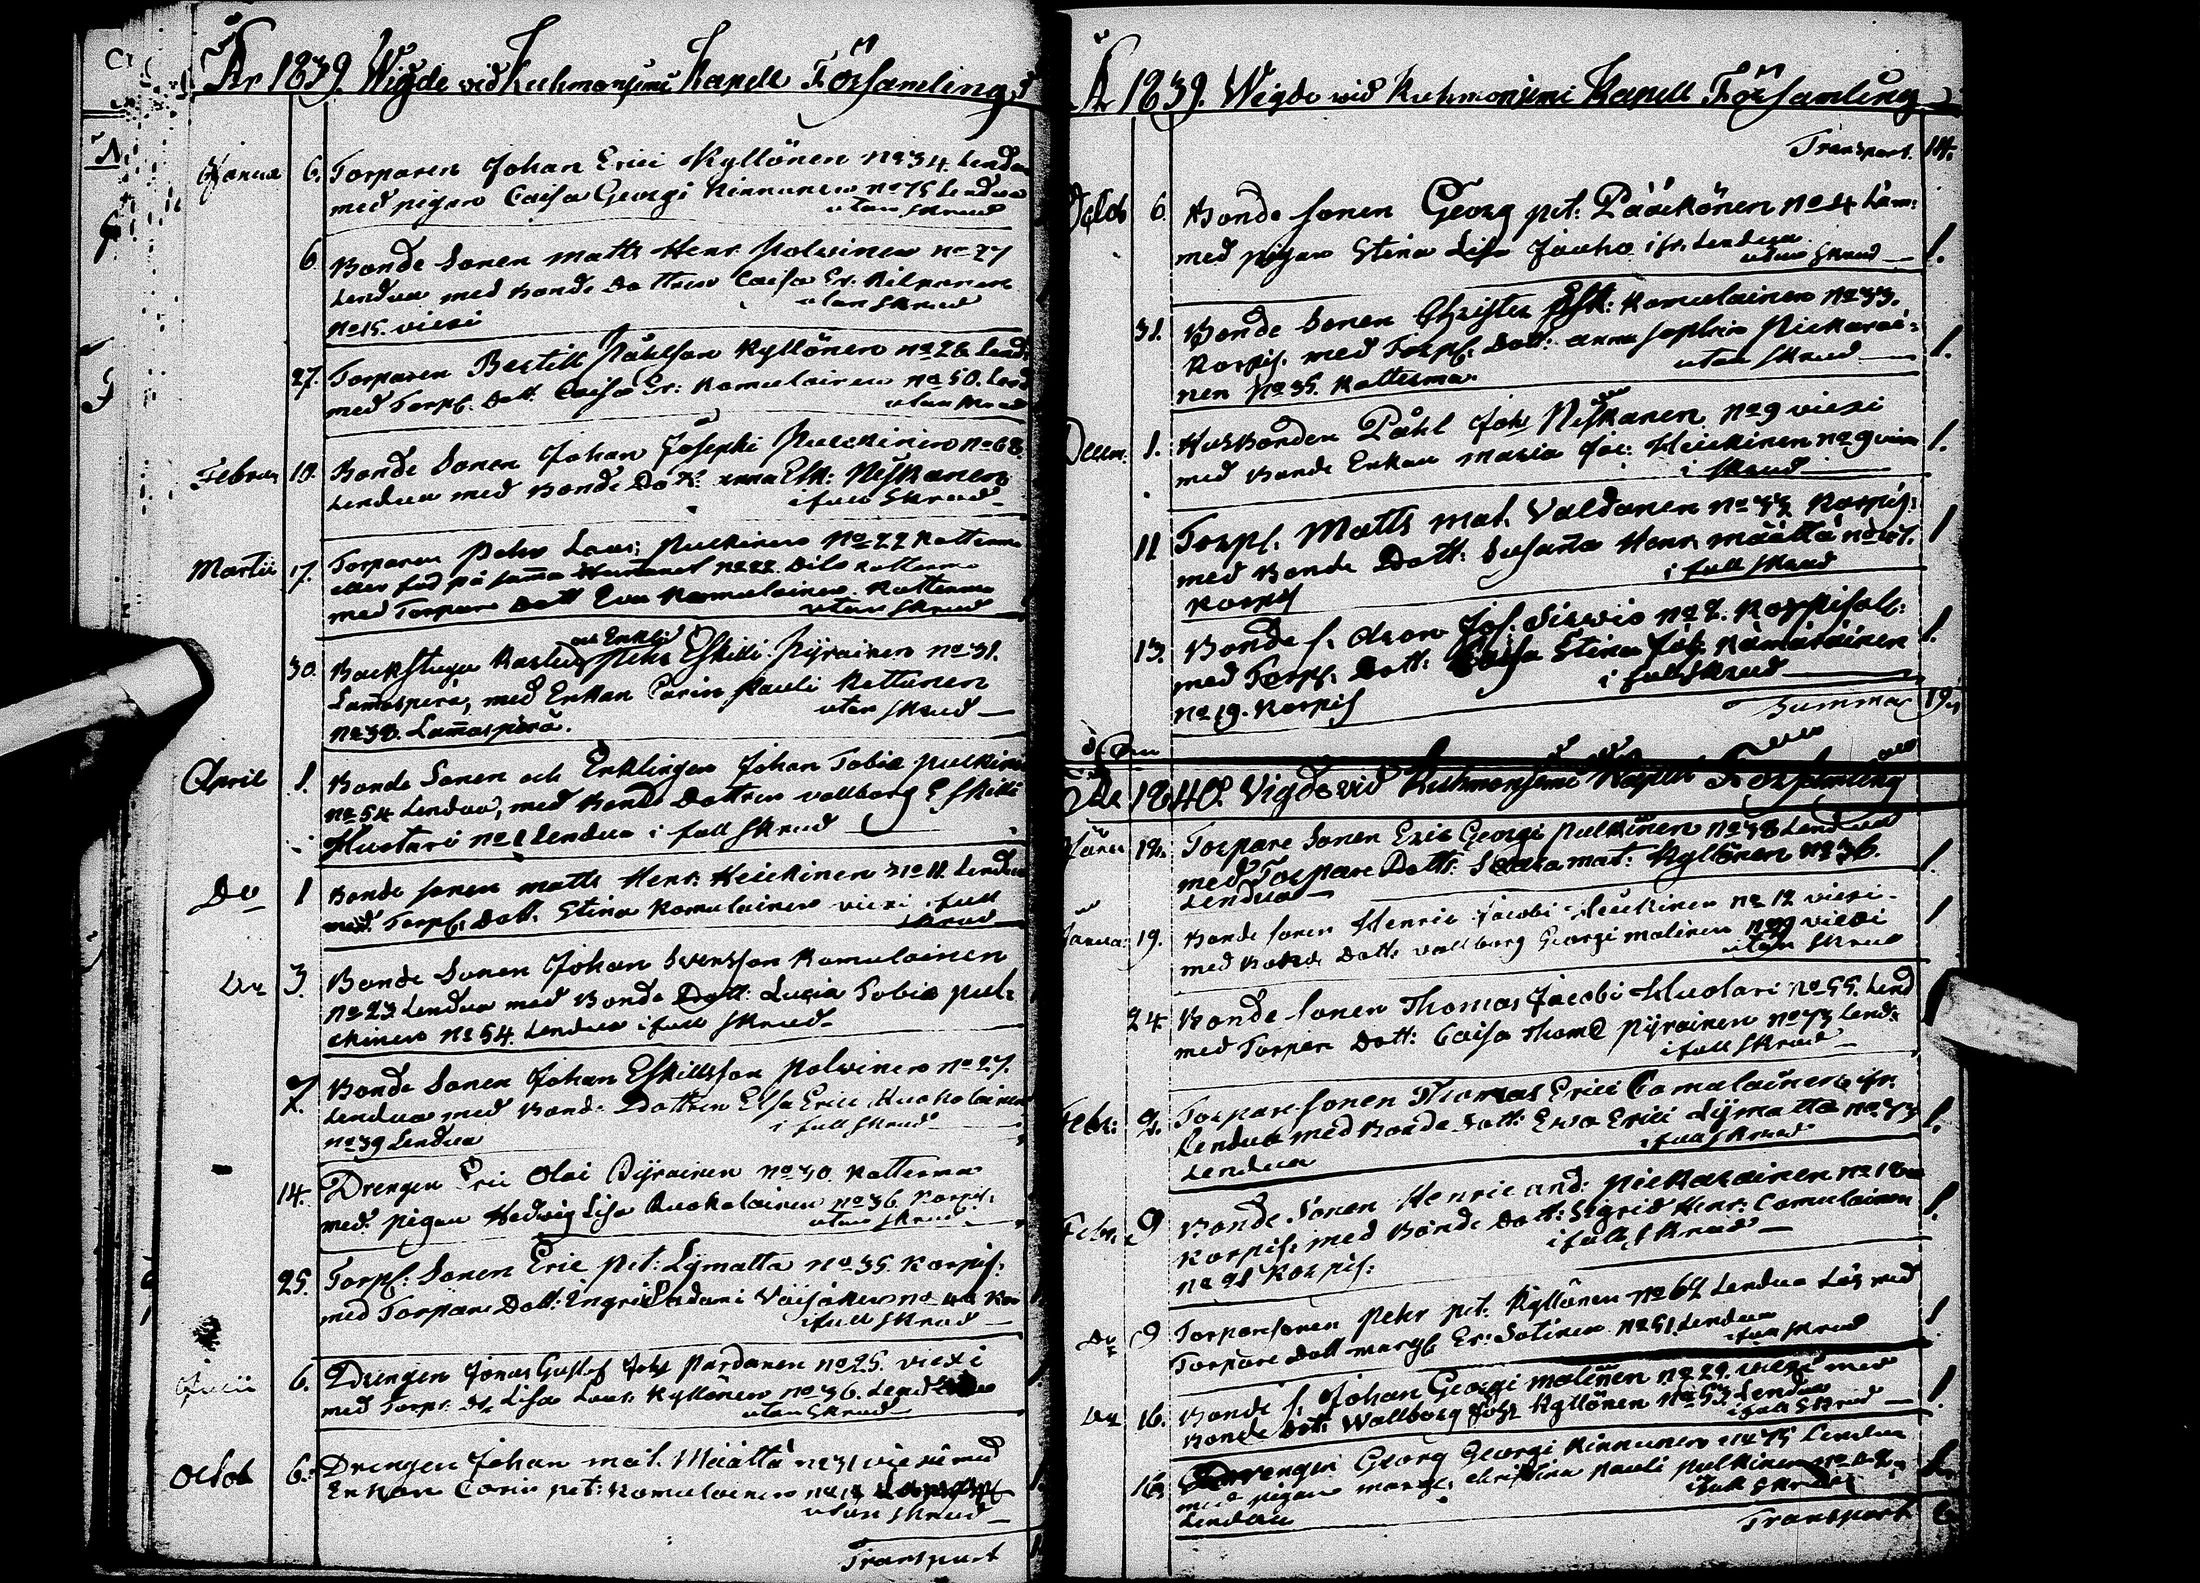 År 1839. Wigde vid Kuhmoniemi Kapell Församling
Janua 6. Torparen Johan Erici Kyllönen No 34. Lendua
med pigan Caisa Georgi Kinnunen No 75 Lendua
utan skrud
6 Bonde Sonen Matts Henr. Polvinen No 27
Lendua med Bonde Dottren Caisa Er. Kilpunen
No 15. Viexi utan skrud
27. Torparen Bertill Påhlson Kyllönen No 28 Lend.
med Torp. Dott. Caisa Er: Komulainen No 50. Lend
utan skrud
Februar 10. Bonde Sonen Johan Josephi Pulckinen No 68.
Lendua med Bonde Dott: Anna Esk: Niskanen
i full skrud
Martii 17. Torparen Petter Laur: Pulkinen No 22 Katterma
eller född på samma No 22. Dito Katterma
med Torpare Dott Eva Komulainen Katterma
utan skrud
och Enkling
30. Backstugu Karlen Petter Eskilli Pyrainen No 31.
Lamaspera, med Enkan Carin Pauli Kettunen
No 38. Lamasperä. utan skrud
April 1. Bonde Sonen och Enklingen Johan Tobiæ Pulkinen
No 54 Lendua, med Bonde Dottren Vallborg Eskilli
Huotari No 1 Lendua i full skrud
Do 1 Bonde sonen Matts Henr: Heickinen No 11 Lendua
med Torp. Dott. Stina Komulainen Viexi i full
skrud
Do 3. Bonde Sonen Johan Svensson Komulainen
No 23 Lendua med Bonde Dott: Lucia Tobiæ Pul=
ckinen No 54. Lendua i full skrud
7. Bonde Sonen Johan Eskillsson Polvinen No 27.
Lendua med Bonde Dottren Elsa Erici Ruokolainen
No 39 Lendua i full skrud
14. Drengen Eric Olai Pyrainen No 30. Katterma
med pigan Hedvig Lisa Ruokolainen No 36. Korpis.
utan skrud
25. Torp: Sonen Eric Pet: Lymatta No 35. Korpis.
med Torpare Dott: Ingrid Adami Väisänen No Kor
i full skrud
Junii 6. Drengen Jonas Gustaf Joh: Pardanen No 25. Viexi
med Torp. Dr Lisa Laur Kyllönen No 36. Lendua
utan skrud
Octob 6. Drengen Johan Mat. Määttä No 31 Viexi med
Enkan Carin Pet: Komulainen No 14
utan skrud
Transport
År 1839. Wigde vid Kuhmoniemi Kapell Församling
Transport. 14.
Octob 6. Bonde sonen Georg Pet: Pääckönen No 4 Lam:
med pigan Stina Lisa Jauho ifr. Lendua
utan skrud 1.
31. Bonde Sonen Christer Esk: Komulainen No 33.
Korpis. med Torp. Dott: Anna Sophia Pickarai=
nen No 35. Katterma. utan skrud 1.
Decem. 1. Husbonden Påhl Joh Niskanen No 9 Viexi
med Bonde Enkan Maria Jac: Heickinen No 9 Viex
i skrud 1.
11 Torp. Matts Mat. Valdanen No 33 Korpis:
med Bonde Dott: Susanna Henr Määttä No 37.
Korpis i full skrud 1
13. Bonde s. Aron Jos. Sirvio No 2. Korpisalm:
med Torp. Dott: Caisa Stina Joh. Hämäläinen
No 19. Korpis i full skrud 1.
Summa 19
År 1840. Vigde vid Kuhmoniemi Kapell Församling
Janu 12. Torpare Sonen Eric Georgi Pulkinen No 38 Lendua
med Torpare Dott: Mat: Kyllönen No 36.
Lendua 1.
Janua: 19. Bonde sonen Henric Jacobi Heickinen No 12 Viexi
med Bonde Dott: Vallborg Georgi Malinen No 29 Viexi
utan skrud 1
24 Bonde Sonen Thomas Jacobi Huotari No 55. Lend
med Torpare Dott: Caisa Thomæ Pyrainen No 73 Lend:
i full skrud
Febr: 2. Torpare Sonen Thomas Erici Comulainen ifr.
Lendua med Bonde Dott: Eva Erici Lymatta No 33
Lendua i full skrud 1.
Febr. 9 Bonde Sonen Henric And: Pickarainen No 18
Korpis. med Bonde Dott: Sigrid Henr: Comulainen
No 21 Korpis: i full skrud 1.
Do 9 Torpare sonen Petter Pet. Kyllönen No 62 Lendua med
Torpare Dott Margb Er: Sotinen No 51 Lendua
i full skrud 1.
Do 16. Bonde s. Johan Georgi Malinen No 29. Viexi med
Bonde Dott: Wallborg Joh: Kyllönen No 53 Lendua
i full skrud 1.
16. Drengen Georg Georgi Kinnunen No 75 Lendua
med pigan Marg: Christina Pauli Pulkinen
Lendua i full skrud 1.
Transport